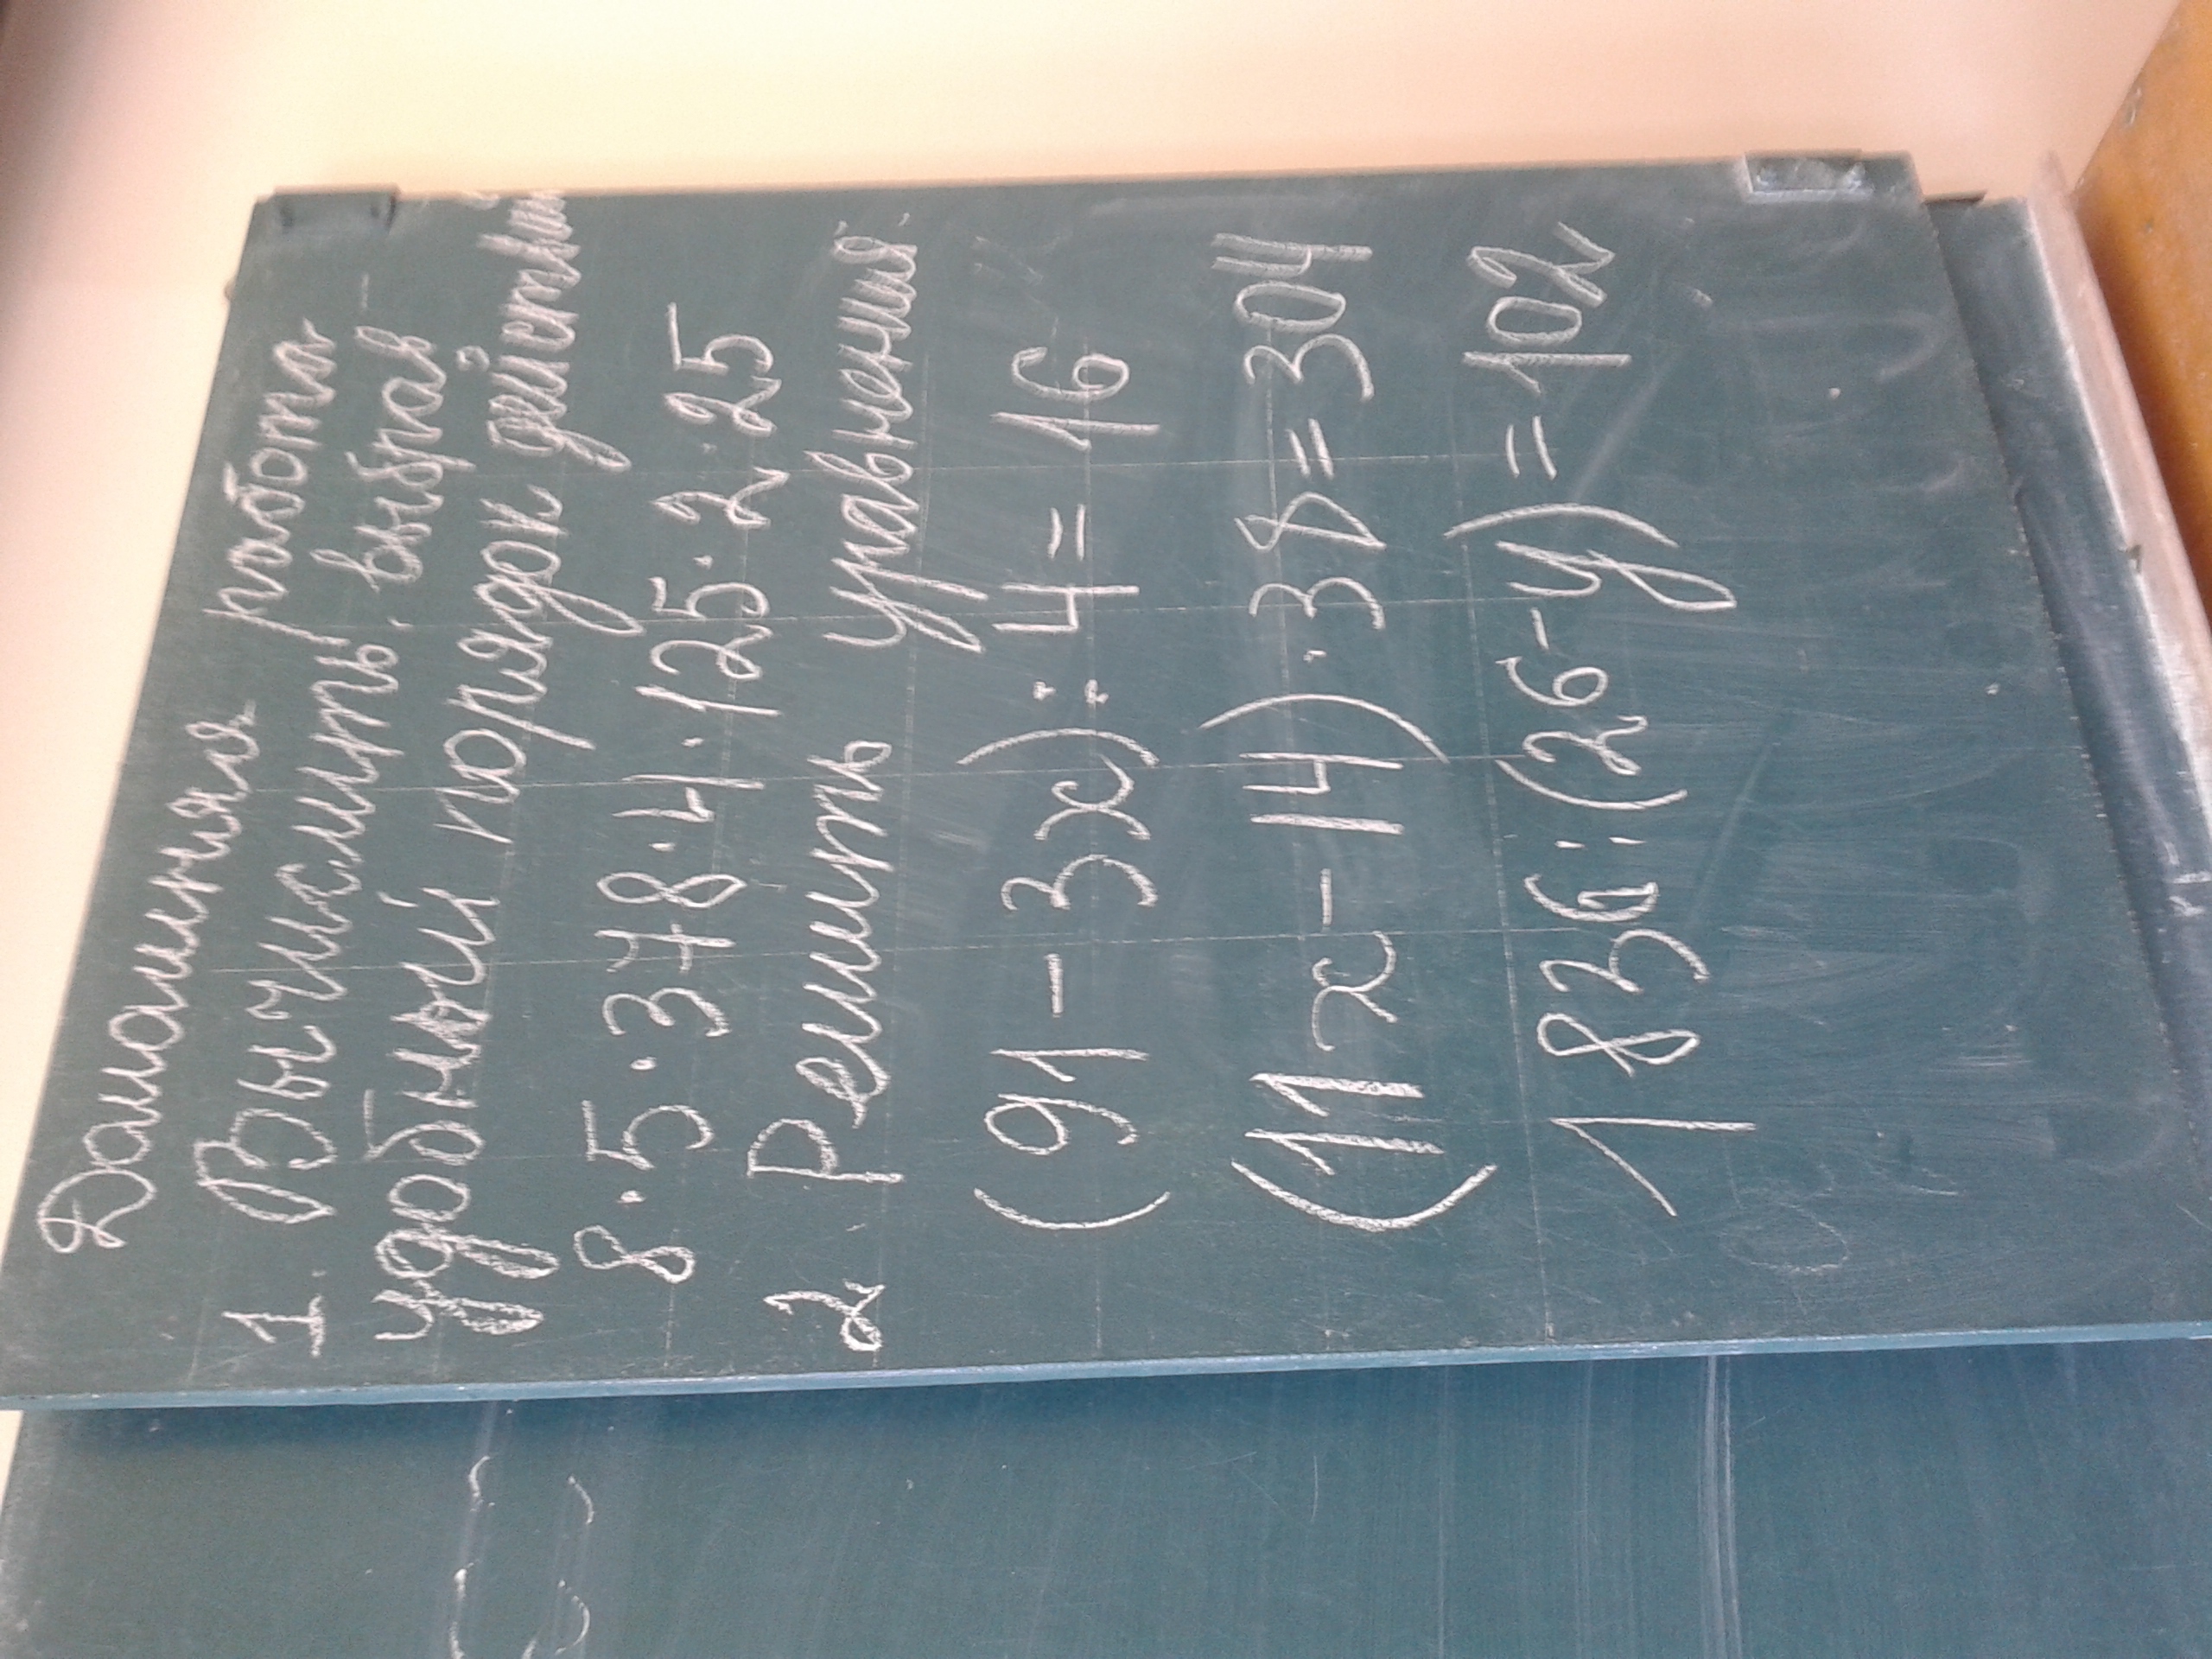 Домашняя работа
1. Вычислить, выбрав
удобный порядок действий
8·5·378·4·125·2·25
2 Решить уравнения:
(91-3x):4=16
(11x-14)·38=304
1836:(26-y)=102